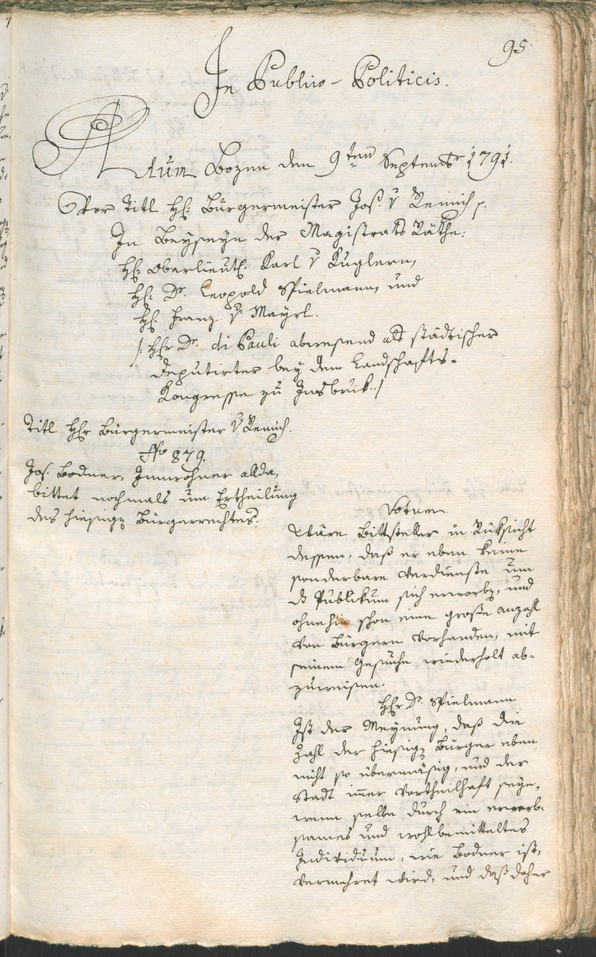 95
In Publico-Politicis.
Actum Bozen den 9ten Septembr 1791.
Vor Titl H: Bürgermeister Jos: v Remich p.
In Beyseyn der Magistrats Räthe:
H: Oberlieut: Karl v Kuglern,
H: Dr. Leopold Spielmann, und
H: Franz v Mayrl.
/: Hr Dr. di Pauli abwesend als städtischer
Deputirter bey dem Landschafts-
Kongresse zu Insbruk. :/
Titl Hr Bürgermeister v Remich.
No 879.
Jos. Bodner, Innwohner allda,
bittet nochmals um Ertheilung
des hiesigen Bürgerrechtes.
Votum
Wäre Bittsteller in Rüksicht
dessen, daß er eben keine
sonderbare Verdienste um
ds Publikum sich erworben, und
ohnehin schon eine große Anzahl
von Bürgern vorhanden, mit
seinem Gesuche wiederholt ab-
zuweisen.
Hr Dr. Spielmann
Ist der Meynung, daß die
Zahl der hiesigen Bürger eben
nicht so übermäsig, und der
Stadt immer vortheilhaft seye,
wenn selbe durch ein erwerb-
sames und wohlbemitteltes
Individuum, wie Bodner ist,
vermehret wird, und daß daher